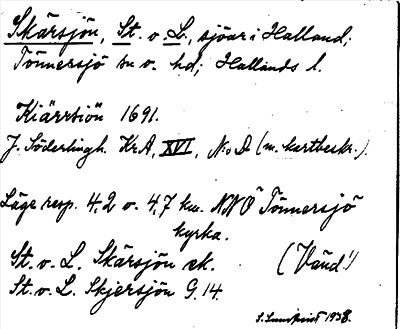 Skärsjön, St. o. L., sjöar i Halland;
Tönnersjö sn o. hd; Hallands l.
Kiärrsiön 1691.
J. Söderlingh. KrA, XVI, N:o D (m. kartbeskr.).
Läge resp. 4,2 o. 4,7 km. NNO Tönnersjö
kyrka.
St. o. L. Skärsjön ek. (Vänd!)
St. o. L. Skjersjön G. 14.
S. Lundqvist 1938.